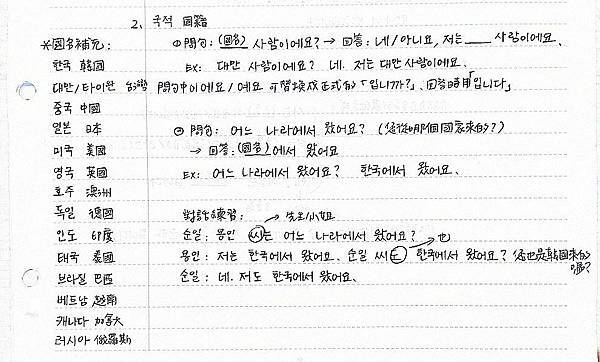 2. 국적 國籍
*國名補充:
한국 韓國
대만/타이완 台灣
중국 中國
일본 日本
미국 美國
영국 英國
호주 澳洲
독일 德國
인도 印度
태국 泰國
브라질 巴西
베트남 越南
캐나다 加拿大
러시아 俄羅斯
① 問句: (國名) 사람이에요? → 回答: 네/아니요, 저는 ____ 사람이에요.
EX: 대만 사람이에요? 네. 저는 대만 사람이에요.
問句中이에요/예요 可替換成正式的「입니까?」, 回答時用「입니다」
② 問句: 어느 나라에서 왔어요? (您從哪個國家來的?)
→ 回答: (國名)에서 왔어요
EX: 어느 나라에서 왔어요? 한국에서 왔어요.
對話練習: → 先生/小姐
순일: 용인 씨는 어느 나라에서 왔어요? 也
용인: 저는 한국에서 왔어요. 순일 씨도 한국에서 왔어요? 您也是韓國來的嗎?
순일: 네. 저도 한국에서 왔어요.